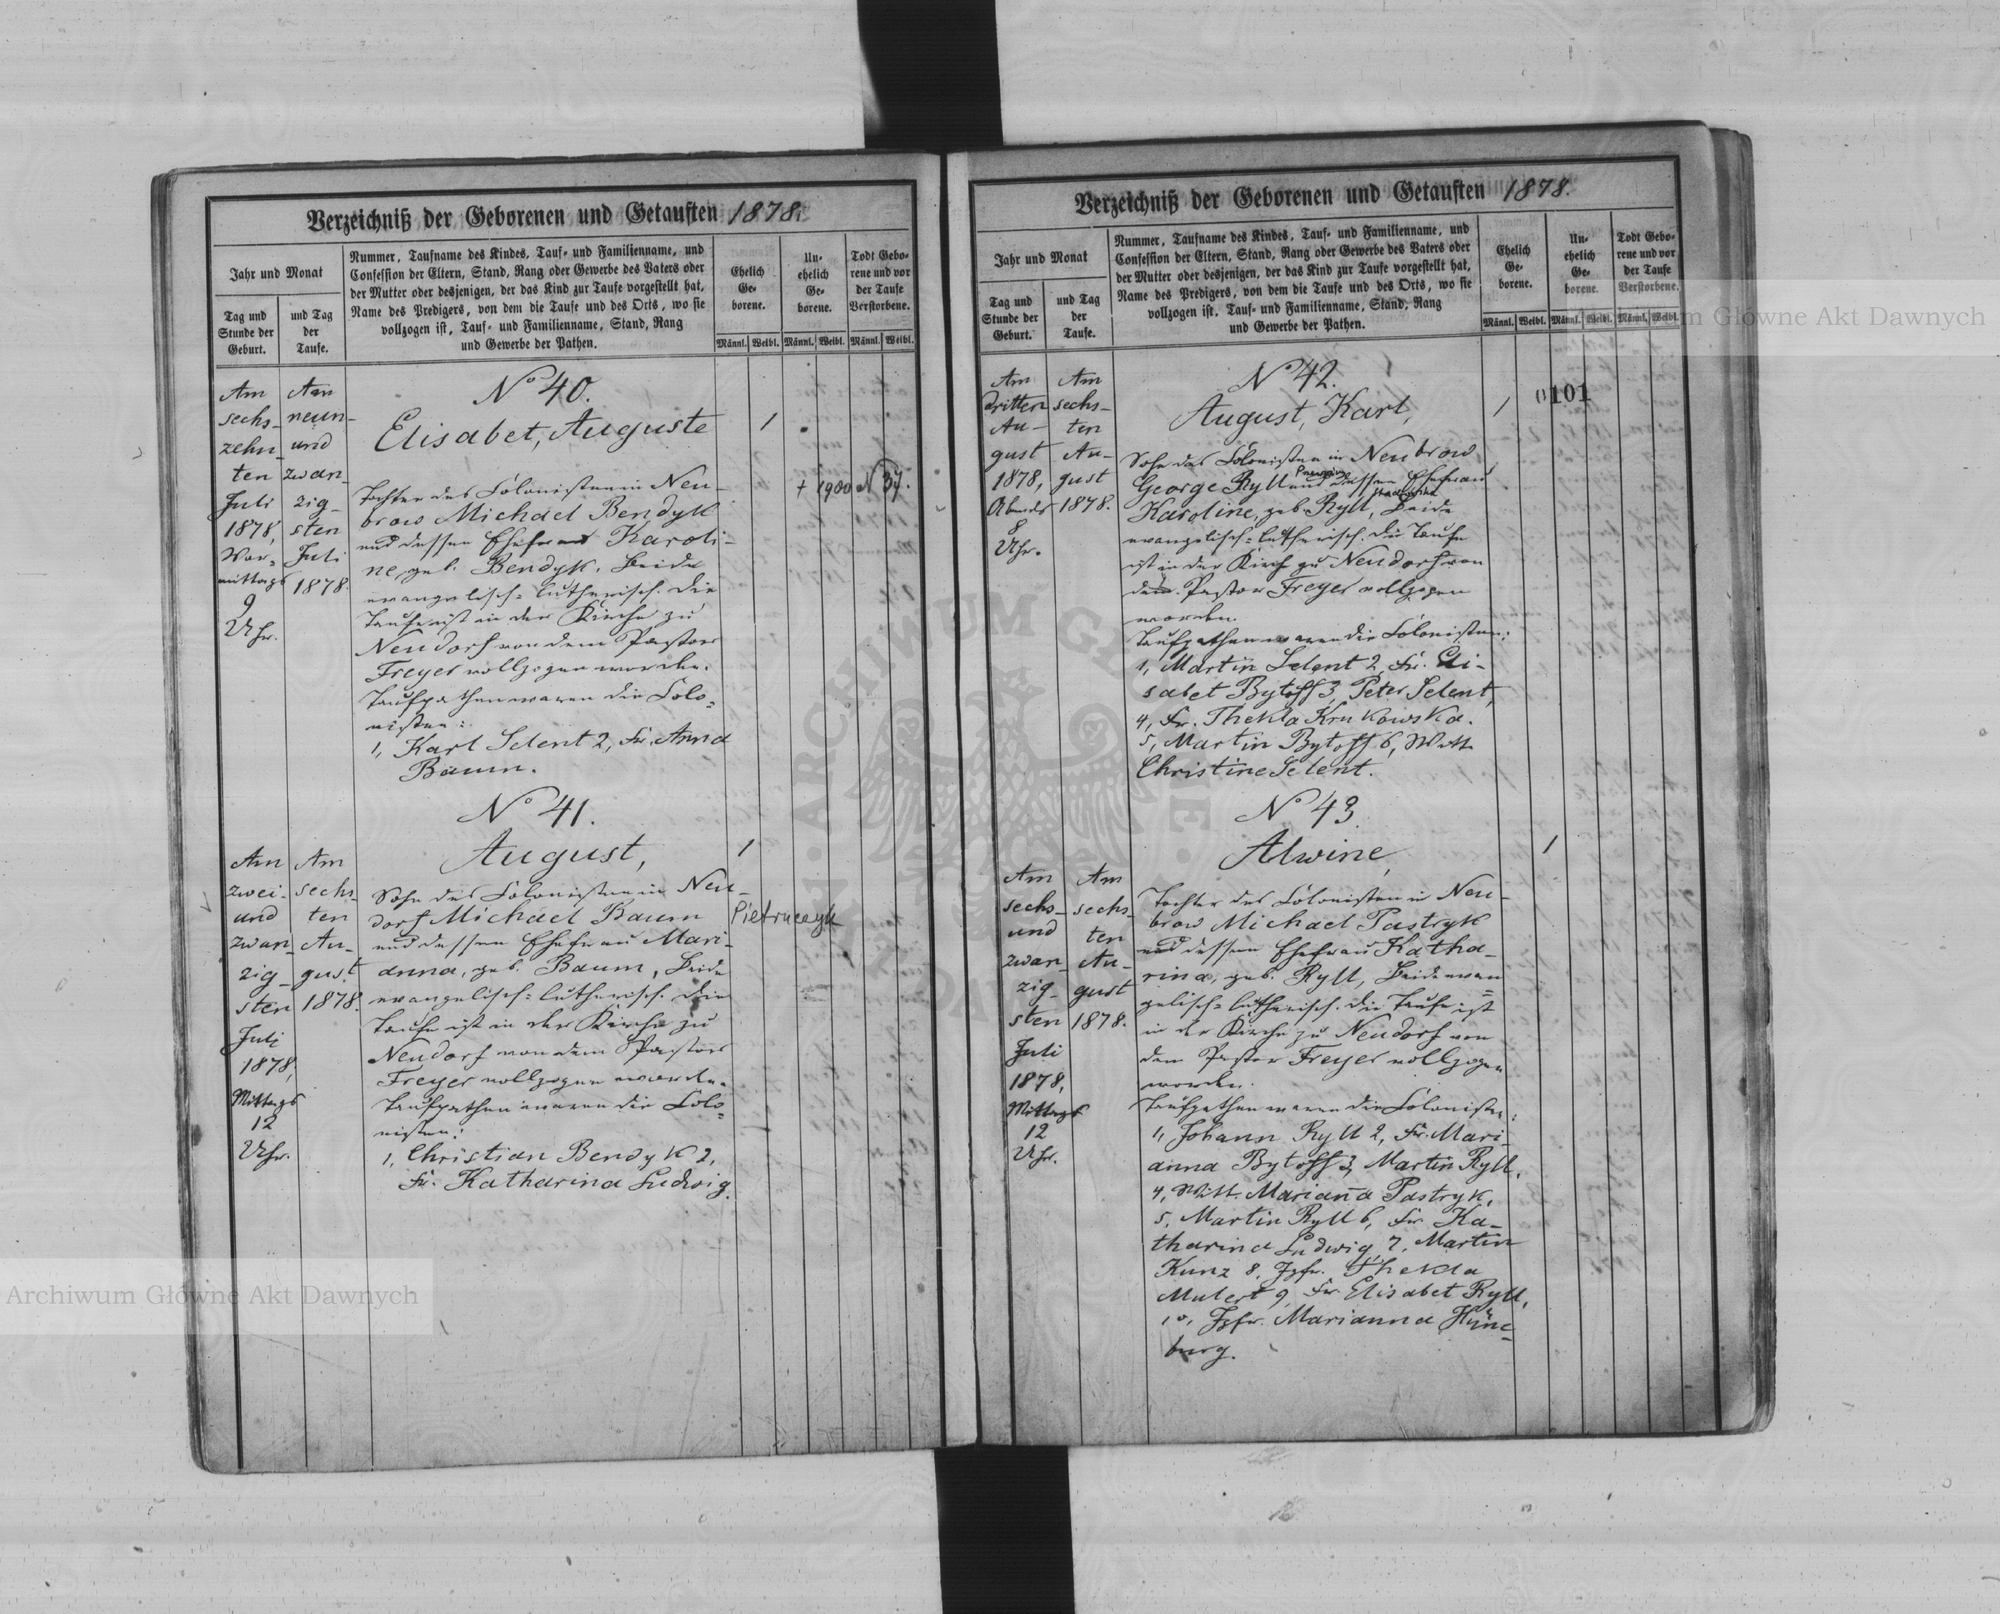 Verzeichniß der Geborenen und Getauften 1878.
Jahr und Monat
Tag und
Stunde der
Geburt.
und Tag
der
Taufe.
Nummer, Taufname des Kindes, Tauf- und Familienname, und
Confession der Eltern, Stand, Rang oder Gewerbe des Vaters oder
der Mutter oder desjenigen, der das Kind zur Taufe vorgestellt hat,
Name des Predigers, von dem die Taufe und des Orts, wo sie
vollzogen ist, Tauf- und Familienname, Stand, Rang
und Gewerbe der Pathen.
Ehelich
Ge-
borene.
Un-
ehelich
Ge-
borene.
Todt Gebo-
rene und vor
der Taufe
Verstorbene.
Männl. Weibl. Männl. Weibl. Männl. Weibl.
Am
sechs-
zehn-
ten
Juli
1878,
Vor-
mittags
9
Uhr.
Am
neun-
und
zwan-
zig-
sten
Juli
1878.
No 40.
Elisabet, Auguste
Tochter des Colonisten in Neu-
brow Michael Bendyk
und dessen Ehefrau Karoli-
ne, geb. Bendyk, Beide
evangelisch-lutherisch. Die
Taufe ist in der Kirche zu
Neudorf von dem Pastor
Freyer vollzogen worden.
Taufpathen waren die Colo-
nisten:
1, Karl Selent 2, Fr. Anna
Baum.
1
+ 1900 N 37.
Am
zwei-
und
zwan-
zig-
sten
Juli
1878,
Mittags
12
Uhr.
Am
sechs-
ten
Au-
gust
1878.
No 41.
August,
Sohn des Colonisten in Neu-
dorf Michael Baum
und dessen Ehefrau Mari-
anna, geb. Baum, Beide
evangelisch-lutherisch. Die
Taufe ist in der Kirche zu
Neudorf von dem Pastor
Freyer vollzogen worden.
Taufpathen waren die Colo-
nisten:
1, Christian Bendyk 2,
Fr. Katharina Ludwig.
1
Pietruczyk
Verzeichniß der Geborenen und Getauften 1878.
Jahr und Monat
Tag und
Stunde der
Geburt.
und Tag
der
Taufe.
Nummer, Taufname des Kindes, Tauf- und Familienname, und
Confession der Eltern, Stand, Rang oder Gewerbe des Vaters oder
der Mutter oder desjenigen, der das Kind zur Taufe vorgestellt hat,
Name des Predigers, von dem die Taufe und des Orts, wo sie
vollzogen ist, Tauf- und Familienname, Stand, Rang
und Gewerbe der Pathen.
Ehelich
Ge-
borene.
Un-
ehelich
Ge-
borene.
Todt Gebo-
rene und vor
der Taufe
Verstorbene.
Männl. Weibl. Männl. Weibl. Männl. Weibl.
Am
dritten
Au-
gust
1878,
Abends
8
Uhr.
Am
sechs-
ten
Au-
gust
1878.
No 42.
August, Karl,
Sohn des Colonisten in Neubrow
George Ryll und dessen Ehefrau
Karoline, geb. Ryll, Beide
evangelisch-lutherisch. Die Taufe
ist in der Kirche zu Neudorf von
dem Pastor Freyer vollzogen
worden.
Taufpathen waren die Colonisten:
1, Martin Selent 2, Fr. Eli-
sabet Bytoff 3, Peter Selent,
4, Fr. Thekla Krukowska.
5, Martin Bytoff 6, Witt.
Christine Selent.
1
101
Am
sechs-
und
zwan-
zig-
sten
Juli
1878,
Mittags
12
Uhr.
Am
sechs-
ten
Au-
gust
1878.
No 43.
Alwine,
Tochter des Colonisten in Neu-
brow Michael Pastryk
und dessen Ehefrau Katha-
rina, geb. Ryll, Beide evan-
gelisch-lutherisch. Die Taufe ist
in der Kirche zu Neudorf von
dem Pastor Freyer vollzogen
worden.
Taufpathen waren die Colonisten:
1, Johann Ryll 2, Fr. Mari-
anna Bytoff 3, Martin Ryll,
4, Witt. Marianna Pastryk,
5, Martin Ryll 6, Fr. Ka-
tharina Ludwig 7, Martin
Kunz 8, Jgfr. Thekla
Mulert 9, Fr. Elisabet Ryll,
10, Jgfr. Marianna Hüne-
burg.
1
Archiwum Główne Akt Dawnych
Archiwum Główne Akt Dawnych